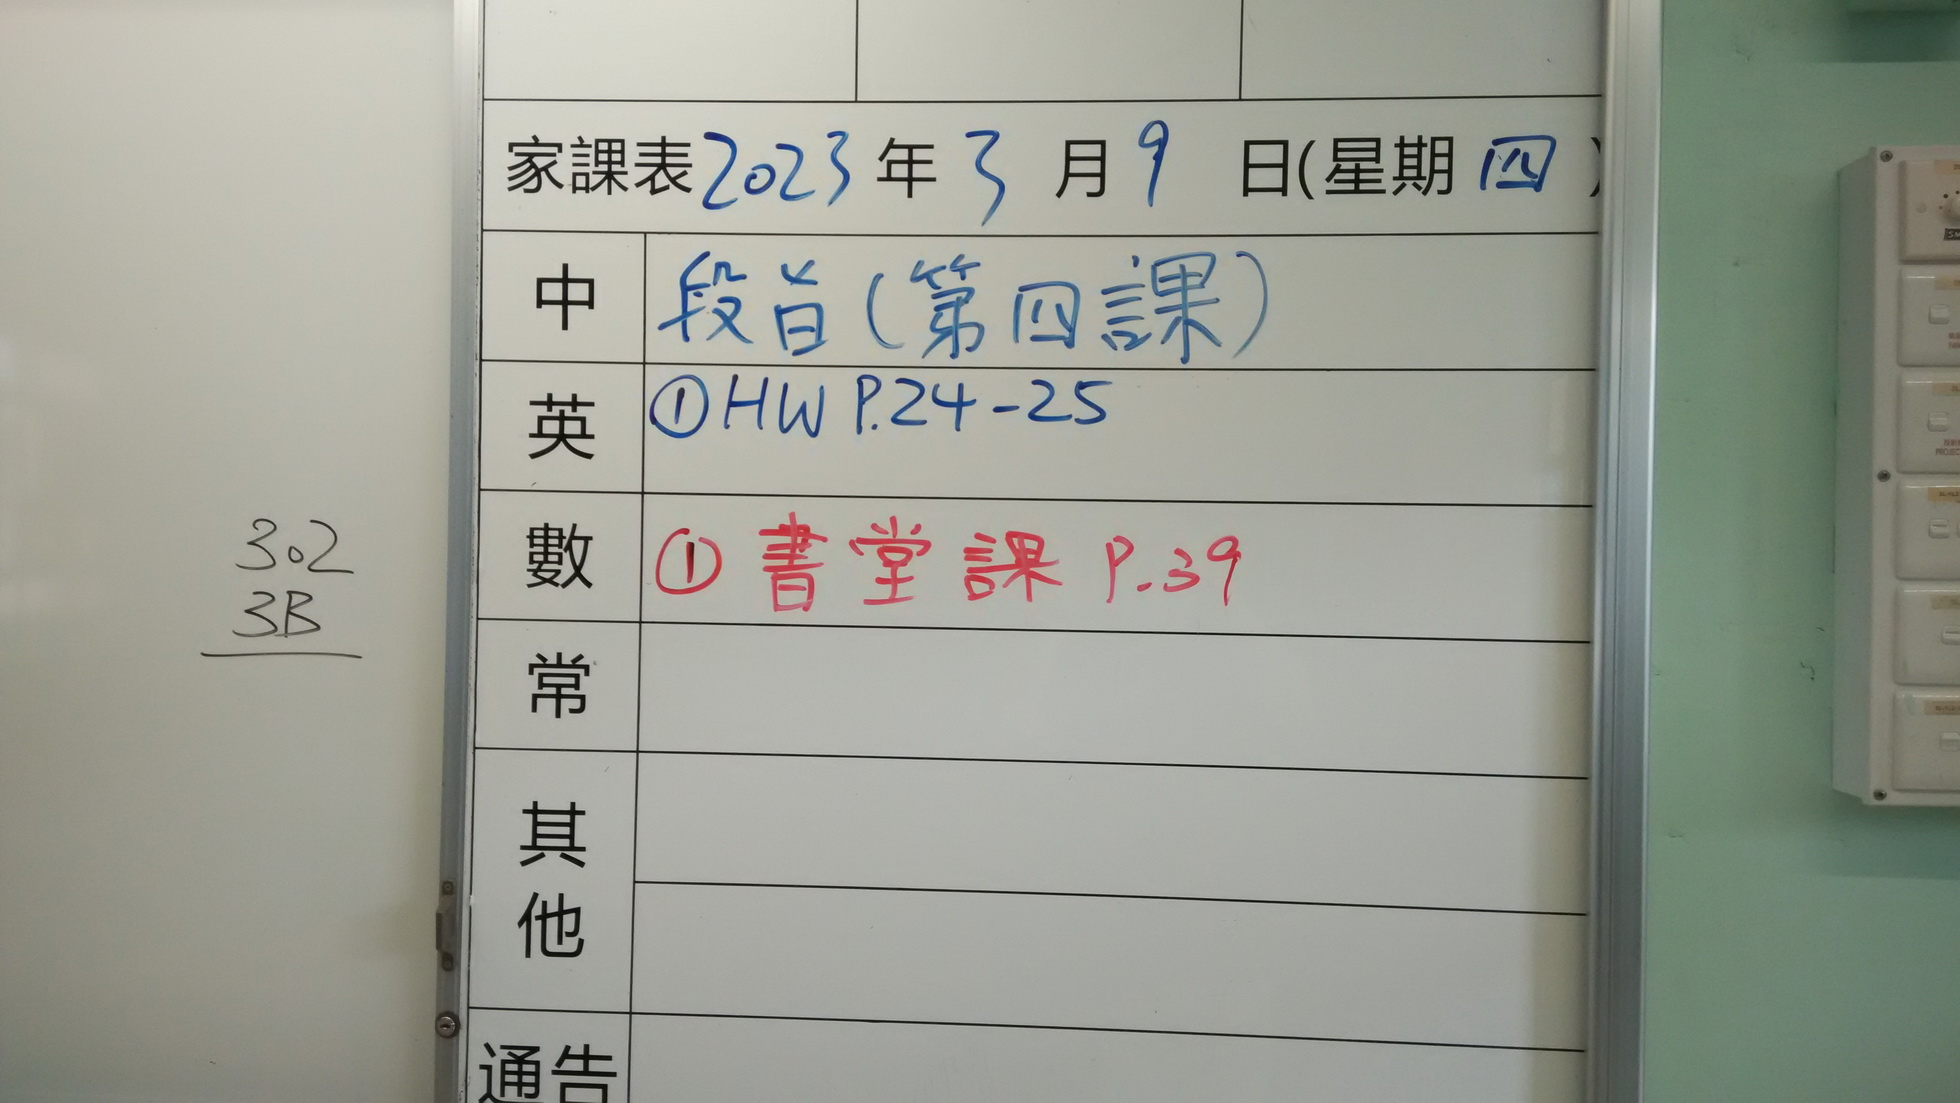 家課表2023年3月9日(星期四)
中 段旨(第四課)
英 ①HW P.24-25
數 ①書堂課 P.39
常
其他
通告
302
3B